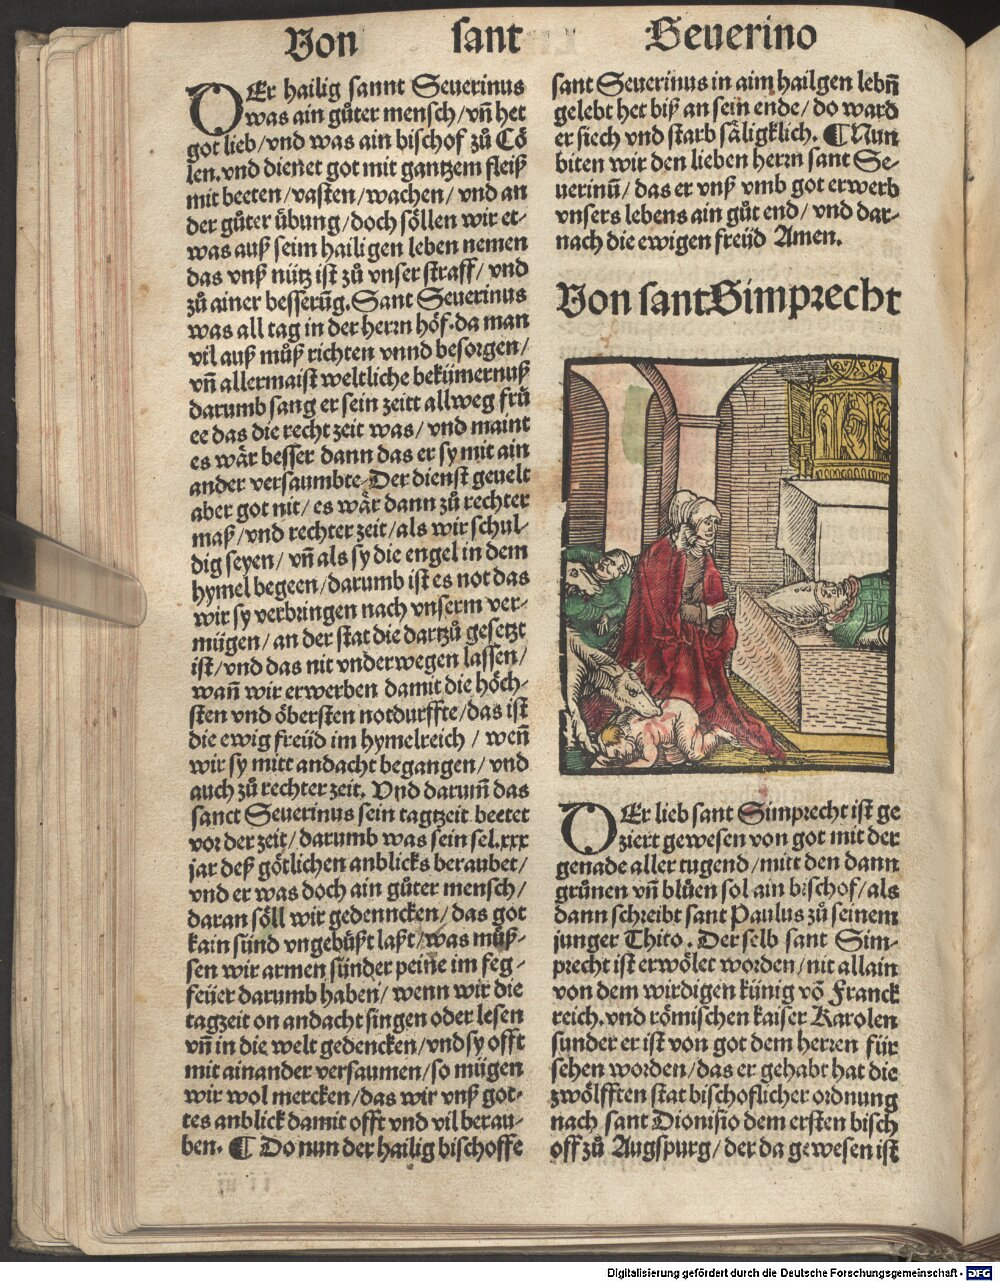 Von sant Seuerino
DEr hailig sannt Seuerinus
was ain gůter mensch/vñ het
got lieb/vnd was ain bischof zů Cö
len.vnd dienet got mit gantzem fleiß
mit beeten/vasten/wachen/vnd an
der gůter übung/doch söllen wir et-
was auß seim hailigen leben nemen
das vnß nütz ist zů vnser straff/vnd
zů ainer besserũg.Sant Seuerinus
was all tag in der herrn höf.da man
vil auß můß richten vnnd besorgen/
vñ allermaist weltliche bekümernuß
darumb sang er sein zeitt allweg frů
ee das die recht zeit was/vnd maint
es wär besser dann das er sy mit ain
ander versaumbte Der dienst geuelt
aber got nit/es wär dann zů rechter
maß/vnd rechter zeit/als wir schul-
dig seyen/vñ als sy die engel in dem
hymel begeen/darumb ist es not das
wir sy verbringen nach vnserm ver-
mügen/an der stat die dartzů gesetzt
ist/vnd das nit vnderwegen lassen/
wañ wir erwerben damit die höch-
sten vnd öbersten notdurffte/das ist
die ewig freüd im hymelreich/weñ
wir sy mitt andacht begangen/vnd
auch zů rechter zeit. Vnd darum̃ das
sanct Seuerinus sein tagtzeit beetet
vor der zeit/darumb was sein sel.xxx
jar deß götlichen anblicks beraubet/
vnd er was doch ain gůter mensch/
daran söll wir gedenncken/das got
kain sünd vngebüßt laßt/was můß-
sen wir armen sünder peine im feg-
feüer darumb haben/wenn wir die
tagzeit on andacht singen oder lesen
vñ in die welt gedencken/vnd sy offt
mit ainander versaumen/so mügen
wir wol mercken/das wir vnß got-
tes anblick damit offt vnd vil berau-
ben. ¶ Do nun der hailig bischoffe
sant Seuerinus in aim hailgen lebñ
gelebt het biß an sein ende/do ward
er siech vnd starb säligklich. ¶ Nun
biten wir den lieben herrn sant Se-
uerinũ/das er vnß vmb got erwerb
vnsers lebens ain gůt end/vnd dar-
nach die ewigen freüd Amen.
Von sant Simprecht
DEr lieb sant Simprecht ist ge
ziert gewesen von got mit der
genade aller tugend/mitt den dann
grůnen vñ blůen sol ain bischof/als
dann schreibt sant Paulus zů seinem
junger Thito. Der selb sant Sim-
precht ist erwölet worden/nit allain
von dem wirdigen künig võ Franck
reich.vnd römischen kaiser Karolen
sunder er ist von got dem herren für
sehen worden/das er gehabt hat die
zwölfften stat bischoflicher ordnung
nach sant Dionisio dem ersten bisch
off zů Augspurg/der da gewesen ist
Digitalisierung gefördert durch die Deutsche Forschungsgemeinschaft - DFG